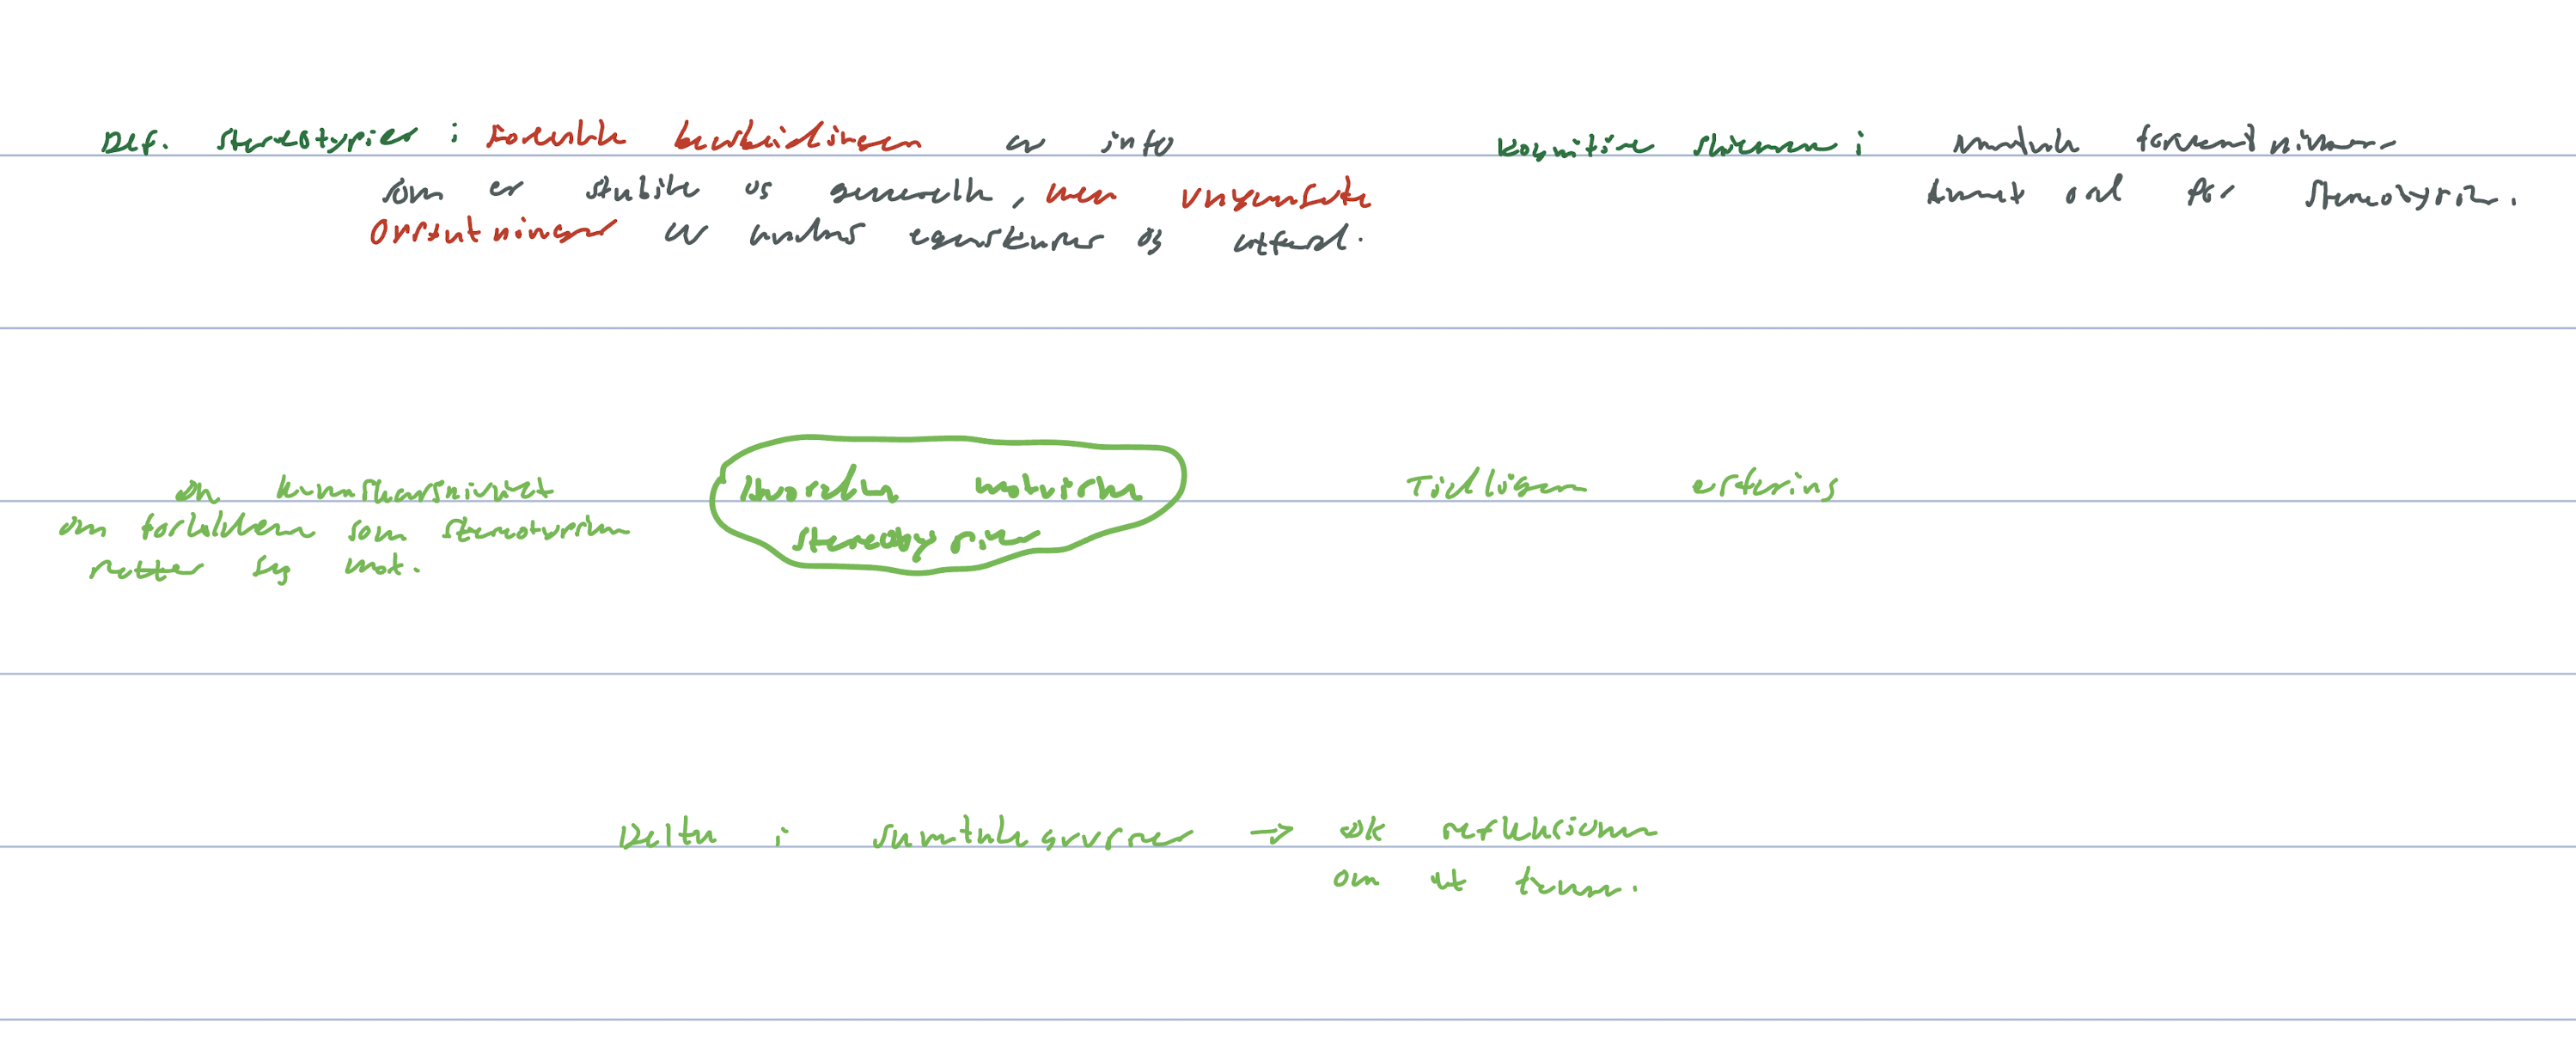 Def. stereotypier : Forenkle bearbeidingen av info
som er stabile og generelle, men unyanserte
Oppfatninger av andres egenskaper og atferd.
Kognitive skjemaer : mentale forventninger
annet ord for stereotypier.
Øk kunnskapsnivået
om forholdene som stereotypien
retter seg mot.
Hvordan motvirke
stereotypier
Tidligere erfaring
Delta i samtalegrupper → øk refleksjonen
om et tema.